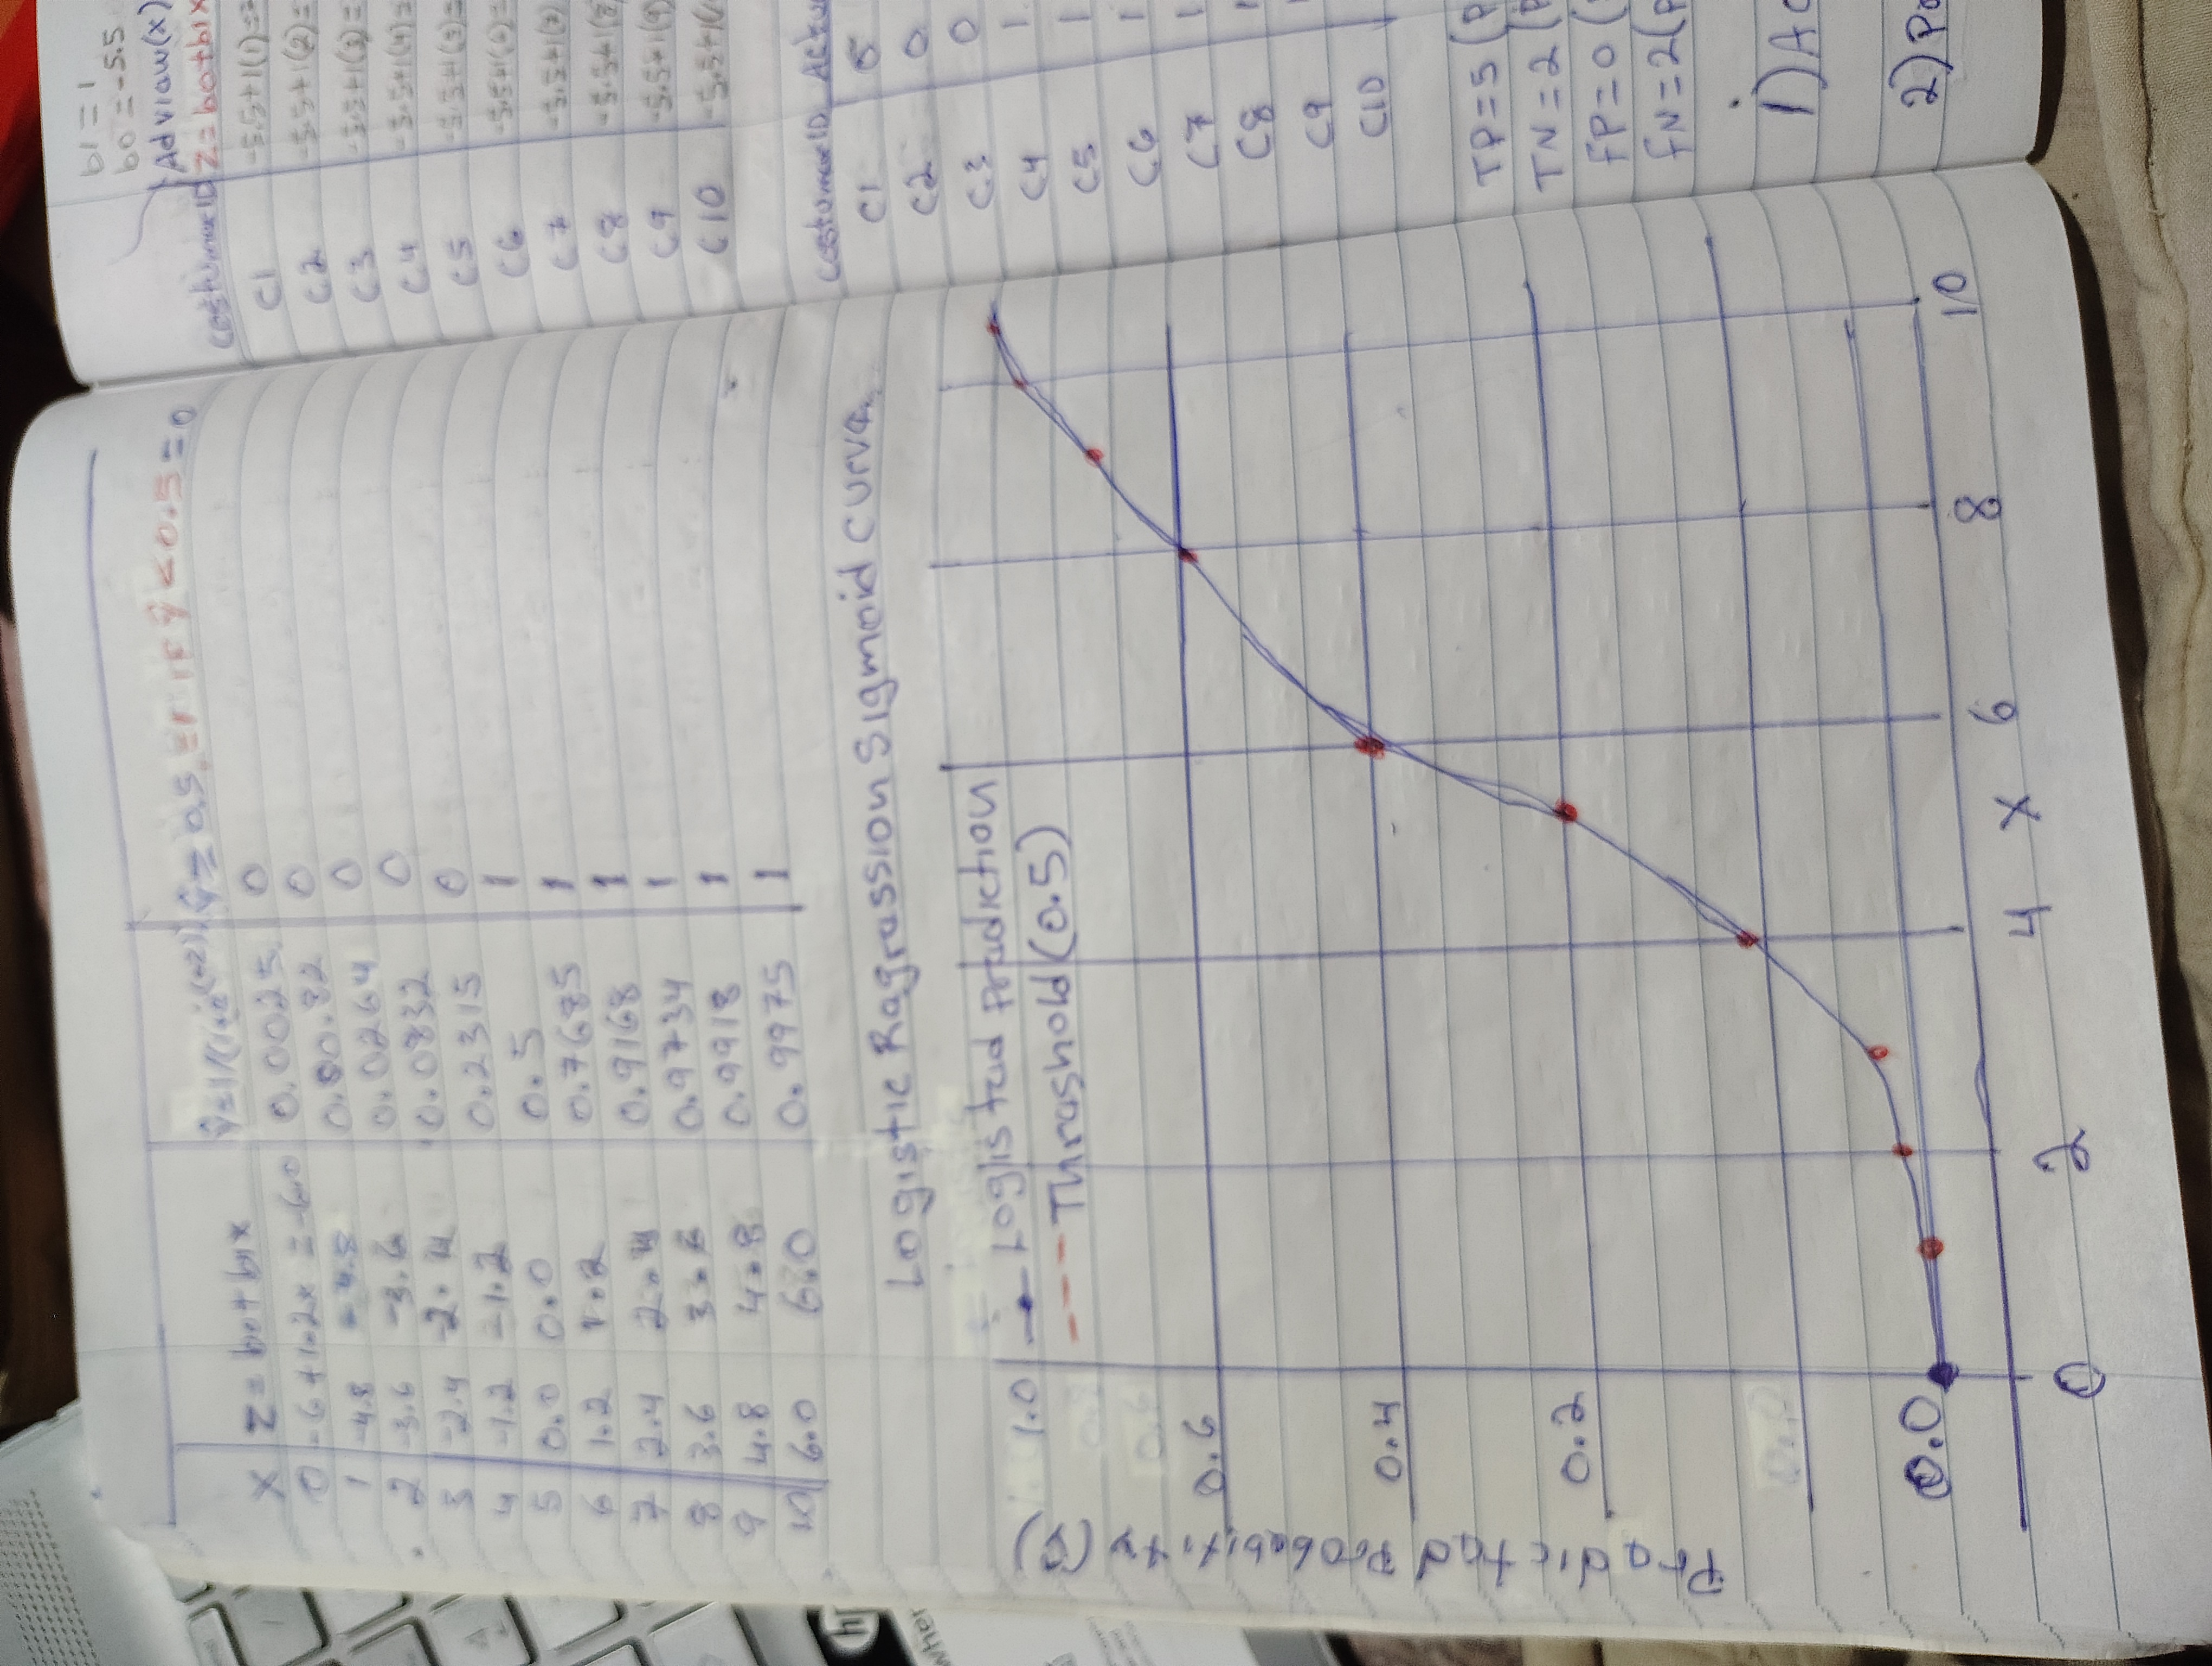 X | Z = b0 + b1x | ŷ=1/(1+e^(-z)) | ŷ ≥ 0.5 = 1 if ŷ < 0.5 = 0
0 -6+1.2x = -6.0 0.0025 0
1 -4.8 -4.8 0.00.82 0
2 -3.6 -3.6 0.0264 0
3 -2.4 -2.4 0.0832 0
4 -1.2 -1.2 0.2315 0
5 0.0 0.0 0.5 1
6 1.2 1.2 0.7685 1
7 2.4 2.4 0.9168 1
8 3.6 3.6 0.9734 1
9 4.8 4.8 0.9918 1
10 6.0 6.0 0.9975 1
Logistic Ragrassion Sigmoid curva.
Logistad Pradiction
--- Thrashold (0.5)
Pradictad Probability (ŷ)
1.0
0.6
0.4
0.2
0.0
0 2 4 X 6 8 10
b1 = 1
b0 = -5.5
Ad viaw(x)
CostumarID Z = b0+b1x
C1 -5.5+1(1)=
C2 -5.5+1(2)=
C3 -5.5+1(3)=
C4 -5.5+1(4)=
C5 -5.5+1(5)=
C6 -5.5+1(6)=
C7 -5.5+1(7)
C8 -5.5+1(8)
C9 -5.5+1(9)
C10 -5.5+1(
CostumarID Actu
C1 0
C2 0
C3 0
C4 1
C5 1
C6 1
C7 1
C8
C9
C10
TP=5 (P
TN=2 (
FP=0 (
FN=2(P
i) Ac
2) Pr
hp
wher